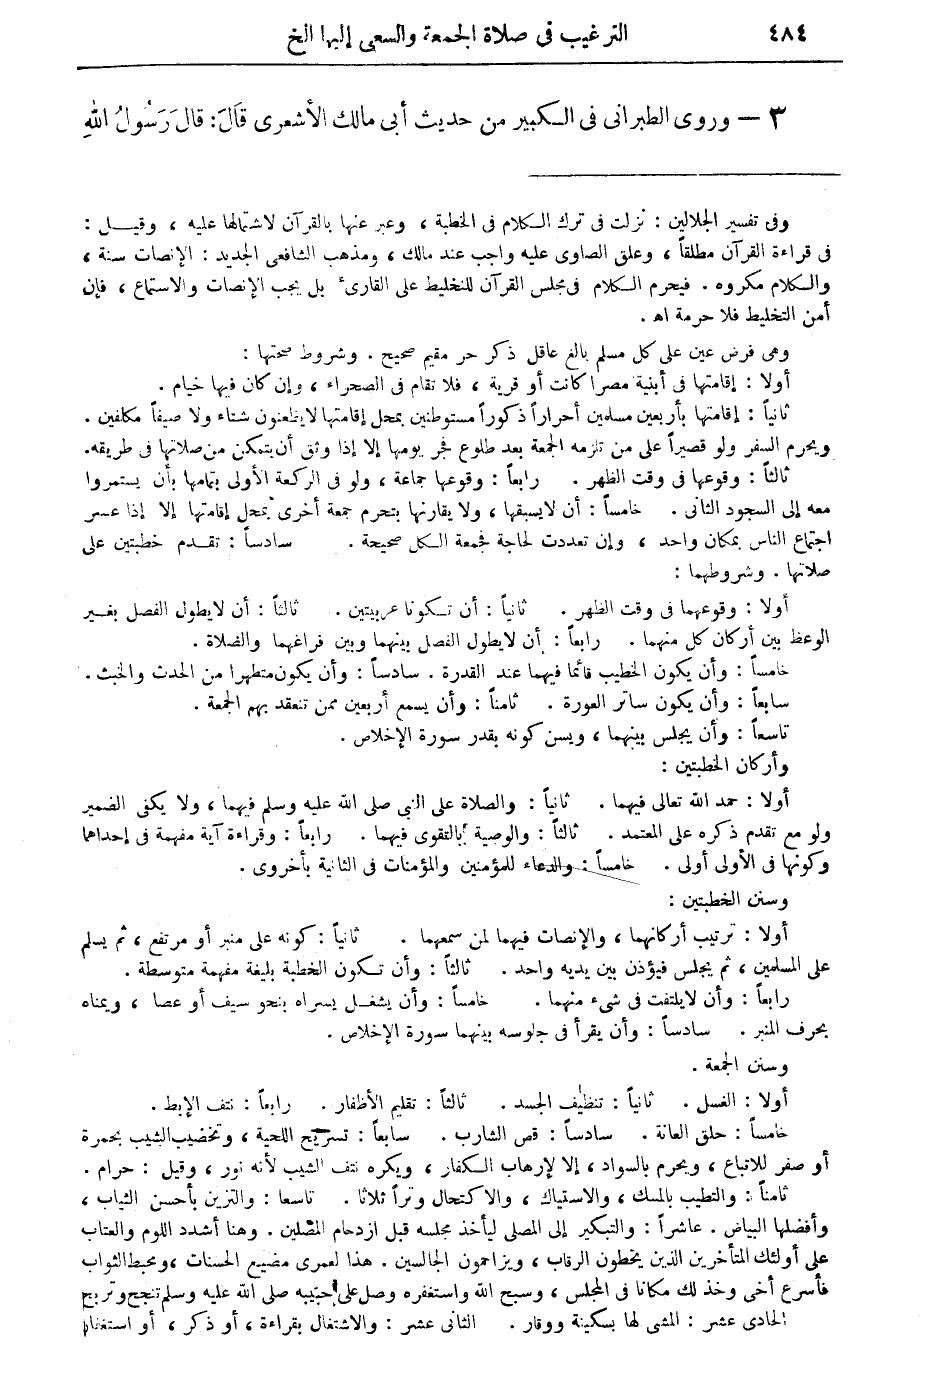 ٤٨٤ الترغيب فى صلاة الجمعة والسعى إليها الخ
٣ — وروى الطبرانى فى الـكبير من حديث أبى مالك الأشعرى قَالَ: قَالَ رَسُولُ اللهِ
وفى تفسير الجلالين : نزلت فى ترك الـكلام فى الخطبة ، وعبر عنها بالقرآن لاشتمالها عليه ، وقيـــل :
فى قراءة القرآن مطلقاً ، وعلق الصاوى عليه واجب عند مالك ، ومذهب الشافعى الجديد : الإنصات سنة ،
والـكلام مكروه . فيحرم الـكلام فى مجلس القرآن للتخليط على القارئ بل يجب الإنصات والاستماع ، فإن
أمن التخليط فلا حرمة اهـ .
وهى فرض عين على كل مسلم بالغ عاقل ذكر حر مقيم صحيح . وشروط صحتها :
أولا : إقامتها فى أبنية مصرا كانت أو قرية ، فلا تقام فى الصحراء ، وإن كان فيها خيام .
ثانياً : إقامتها بأربعين مسلمين أحراراً ذكوراً مستوطنين بمحل إقامتها لايظعنون شتاء ولا صيفاً مكلفين .
ويحرم السفر ولو قصيراً على من تلزمه الجمعة بعد طلوع فجر يومها إلا إذا وثق أن يتمكن من صلاتها فى طريقه.
ثالثاً : وقوعها فى وقت الظهر . رابعاً : وقوعها جماعة ، ولو فى الركعة الأولى بتمامها بأن يستمروا
معه إلى السجود الثانى . خامساً : أن لايسبقها ، ولا يقارنها بتحرم جمعة أخرى بمحل إقامتها إلا إذا عسر
اجتماع الناس بمكان واحد ، وإن تعددت لحاجة فجمعة الـكل صحيحة . سادساً : تقـدم خطبتين على
صلاتها . وشروطهما :
أولا : وقوعهما فى وقت الظهر . ثانياً : أن تـكونا عربيتين . ثالثاً : أن لايطول الفصل بغـير
الوعظ بين أركان كل منهما . رابعاً : أن لايطول الفصل بينهما وبين فراغهما والصلاة .
خامساً : وأن يكون الخطيب قائما فيهما عند القدرة . سادساً : وأن يكون متطهرا من الحدث والخبث .
سابعاً : وأن يكون ساتر العورة . ثامناً : وأن يسمع أربعين ممن تنعقد بهم الجمعة .
تاسعاً : وأن يجلس بينهما ، ويسن كونه بقدر سورة الإخلاص .
وأركان الخطبتين :
أولا : حمد الله تعالى فيهما . ثانياً : والصلاة على النبى صلى الله عليه وسلم فيهما ، ولا يكفى الضمير
ولو مع تقدم ذكره على المعتمد . ثالثاً : والوصية بالتقوى فيهما . رابعاً : وقراءة آية مفهمة فى إحداهما
وكونها فى الأولى أولى . خامساً : والدعاء للمؤمنين والمؤمنات فى الثانية بأخروى .
وسنن الخطبتين :
أولا : ترتيب أركانهما ، والإنصات فيهما لمن سمعهما . ثانياً : كونه على منبر أو مرتفع ، ثم يسلم
على المسلمين ، ثم يجلس فيؤذن بين يديه واحد . ثالثاً : وأن تـكون الخطبة بليغة مفهمة متوسطة .
رابعاً : وأن لايلتفت فى شىء منهما . خامساً : وأن يشغـل يسراه بنحو سيف أو عصا ، ويمناه
بحرف المنبر . سادساً : وأن يقرأ فى جلوسه بينهما سورة الإخلاص .
وسنن الجمعة .
أولا : الغسل . ثانياً : تنظيف الجسد . ثالثاً : تقليم الأظفار . رابعاً : نتف الإبط .
خامساً : حلق العانة . سادساً : قص الشارب . سابعاً : تسريح اللحية ، وتخضيب الشيب بحمرة
أو صفر للاتباع ، ويحرم بالسواد ، إلا لإرهاب الـكفار ، ويكره نتف الشيب لأنه نور ، وقيل : حرام .
ثامناً : والتطيب بالمسك ، والاستياك ، والاكتحال وتراً ثلاثا . تاسعا : والتزين بأحسن الثياب ،
وأفضلها البياض . عاشراً : والتبكير إلى المصلى ليأخذ مجلسه قبل ازدحام المصلين . وهنا أشدد اللوم والعتاب
على أولئك المتأخرين الذين يخطون الرقاب ، ويزاحمون الجالسين . هذا لعمرى مضيع الحسنات ، ومحبط الثواب
فأسرع أخى وخذ لك مكانا فى المجلس ، وسبح الله واستغفره وصل على حبيبه صلى الله عليه وسلم تنجح وتربح
الحادى عشر : المشى لها بسكينة ووقار . الثانى عشر : والاشتغال بقراءة ، أو ذكر ، أو استغفار